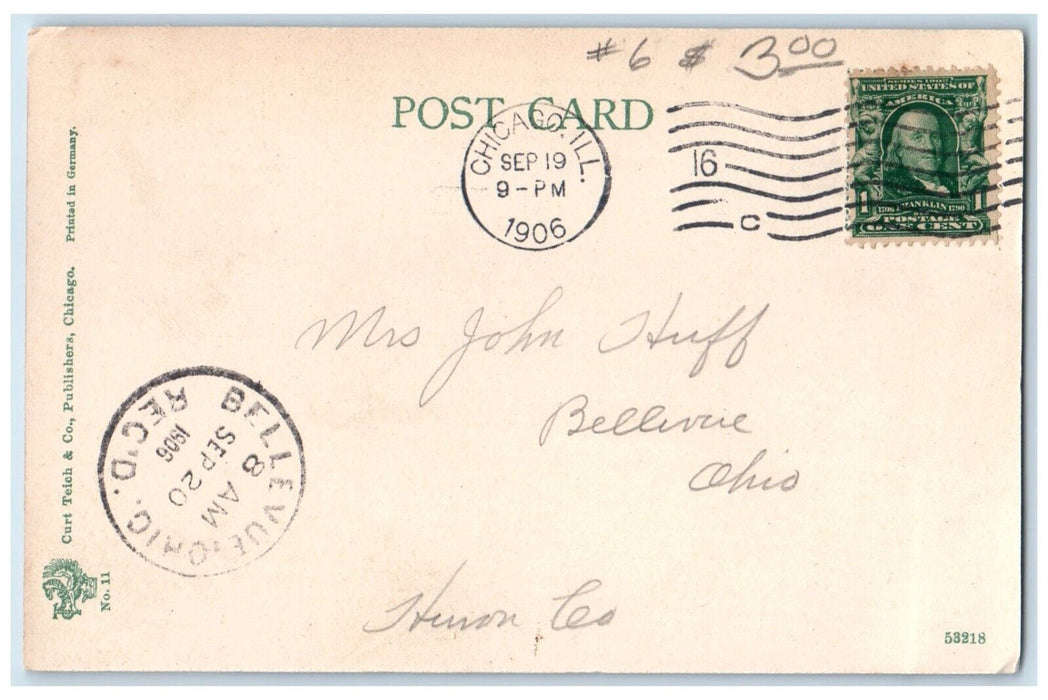 #6 $ 3.00
POST CARD
CHICAGO, ILL.
SEP 19
9-PM
1906
16
C
SERIES 1902
UNITED STATES OF
AMERICA
1 FRANKLIN 1
1706 1790
POSTAGE
ONE CENT
Mrs John Huff
Bellevue
Ohio
Huron Co
BELLEVUE, OHIO.
REC'D.
8 AM
SEP 20
1906
Curt Teich & Co., Publishers, Chicago. Printed in Germany.
No. 11
53218